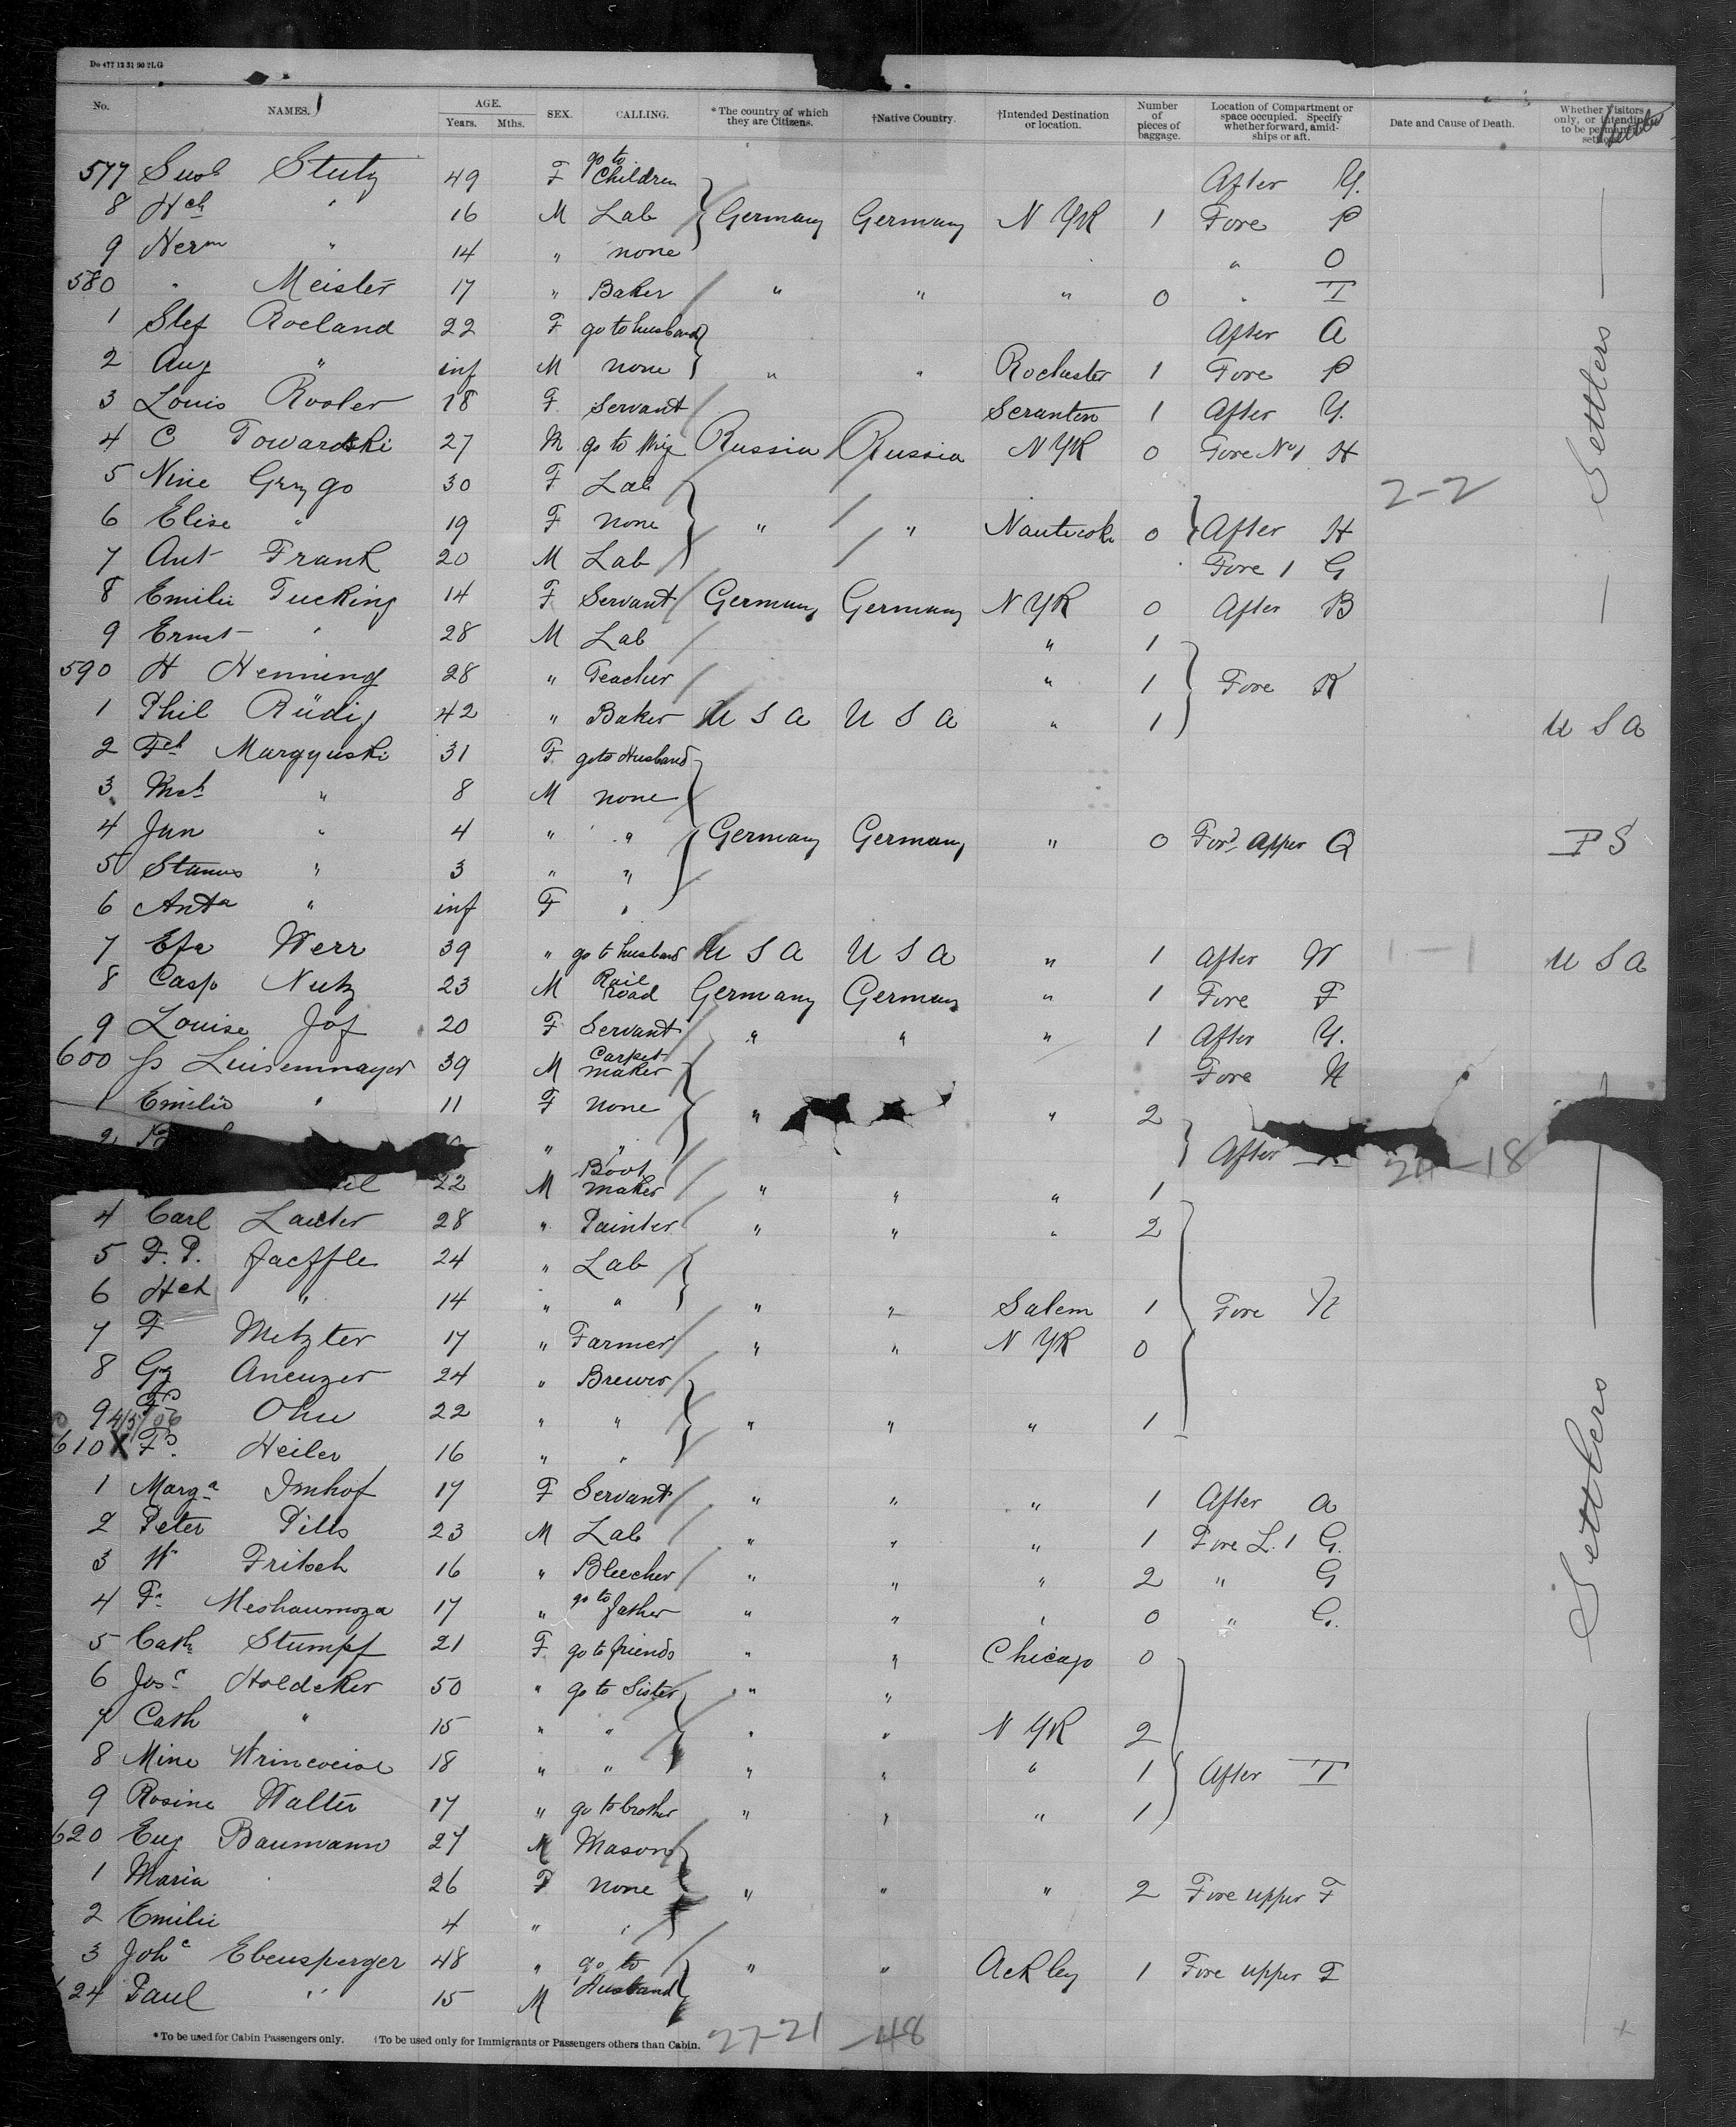 Do 477 12 31 90 2LG
No. NAMES. AGE. Years. Mths. SEX. CALLING. *The country of which they are Citizens. †Native Country. †Intended Destination or location. Number of pieces of baggage. Location of Compartment or space occupied. Specify whether forward, amidships or aft. Date and Cause of Death. Whether Visitors only, or intending to be permanent settlers
577 Stutz 49 F go to Children After Y.
8 Hch " 16 M Lab Germany Germany N YK 1 Fore P
9 Herm " 14 " none " O
580 " Meister 17 " Baker " " " 0 " T
1 Stef Roeland 22 F go to husband After A
2 Aug " inf M none " " Rochester 1 Fore P
3 Louis Rosler 18 F. Servant Scranton 1 After Y.
4 C Towardski 27 M go to Russia Russia N YK 0 Fore No 1 H
5 Nine Grzygo 30 F Lab 2-2
6 Elise " 19 F none " " Nanticoke 0 After H
7 Ant Frank 20 M Lab Fore 1 G
8 Emilie Tucking 14 F Servant Germany Germany N YK 0 After B
9 Ernst " 28 M Lab " 1
590 H Henning 28 " Teacher " 1 Fore K
1 Phil Rüdig 42 " Baker U S A U S A " 1 U S A
2 Margyuski 31 F go to Husband
3 " 8 M none
4 Jan " 4 " " Germany Germany " 0 For'd upper Q
5 Stanus " 3 " "
6 Anta " inf F "
7 Efa Werr 39 " go to husband U S A U S A " 1 After W 1-1 U S A
8 Casp Nutz 23 M Rail Road Germany Germany " 1 Fore F
9 Louise Jof 20 F Servant " " " 1 After Y.
600 Luisenmayer 39 M Carpet maker Fore N
1 Emilie " 11 F none " " 2
2 " " After
22 M Boot maker " " " 1 24-18
4 Carl Lauter 28 " Painter " " " 2
5 F. P. Jaeffle 24 " Lab
6 Hch " 14 " " " " Salem 1 Fore N
7 F Metzter 17 " Farmer " " N YK 0
8 Gg Aneuzer 24 " Brewer
9 4/5/06 Ohu 22 " " " " " 1
610 X Fs. Heiler 16 " "
1 Marga Imhof 17 F Servant " " " 1 After a
2 Peter Pitts 23 M Lab " " " 1 Fore L. 1 G.
3 W Fritsch 16 " Bleecher " " " 2 " G
4 Meshaumoza 17 " go to father " " " 0 " G.
5 Cath Stumpf 21 F. go to friends " " Chicago 0
6 Josc Holdcker 50 " go to Sister " "
7 Cath " 15 " " " " N YK 2
8 Mine 18 " " " " " 1 After T
9 Rosine Walter 17 " go to brother " " " 1
620 Eug Baumann 27 M Mason
1 Maria 26 F none " " " 2 Fore upper F
2 Emilie 4 " "
3 Johc Ebensperger 48 " go to Husband " " Ackley 1 Fore upper F
24 Paul " 15 M
Settlers
Settlers
*To be used for Cabin Passengers only. †To be used only for Immigrants or Passengers others than Cabin. 27-21 -48